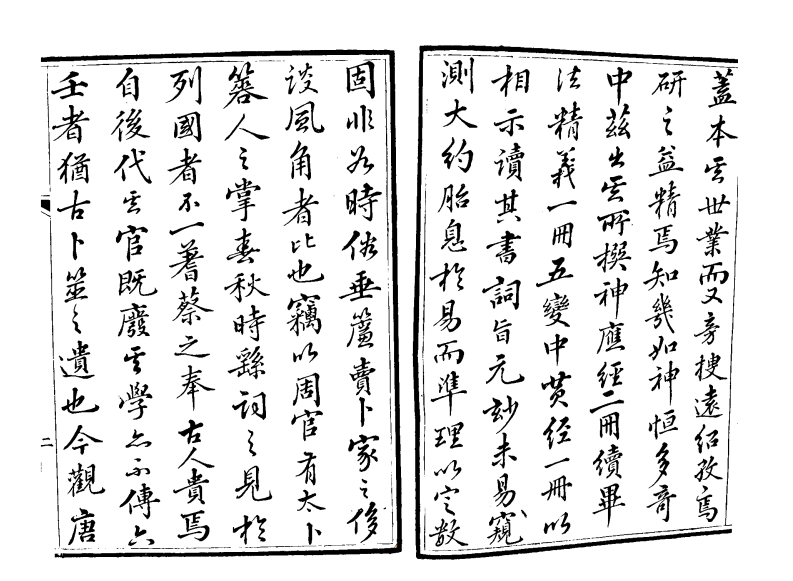 蓋本其世業而又旁搜遠紹孜焉
研之益精焉知幾如神恒多奇
中茲出其所撰神應經二冊續畢
法精義一冊五變中黃經一冊以
相示讀其書詞旨元妙未易窺
測大約胎息於易而準理以定数
固非若時俗垂簾賣卜家之侈
談風角者比也竊以周官有太卜
簭人之掌春秋時繇詞之見於
列國者不一蓍蔡之奉古人貴焉
自後代其官既廢其學亦不傳六
壬者猶古卜筮之遺也今觀唐
二